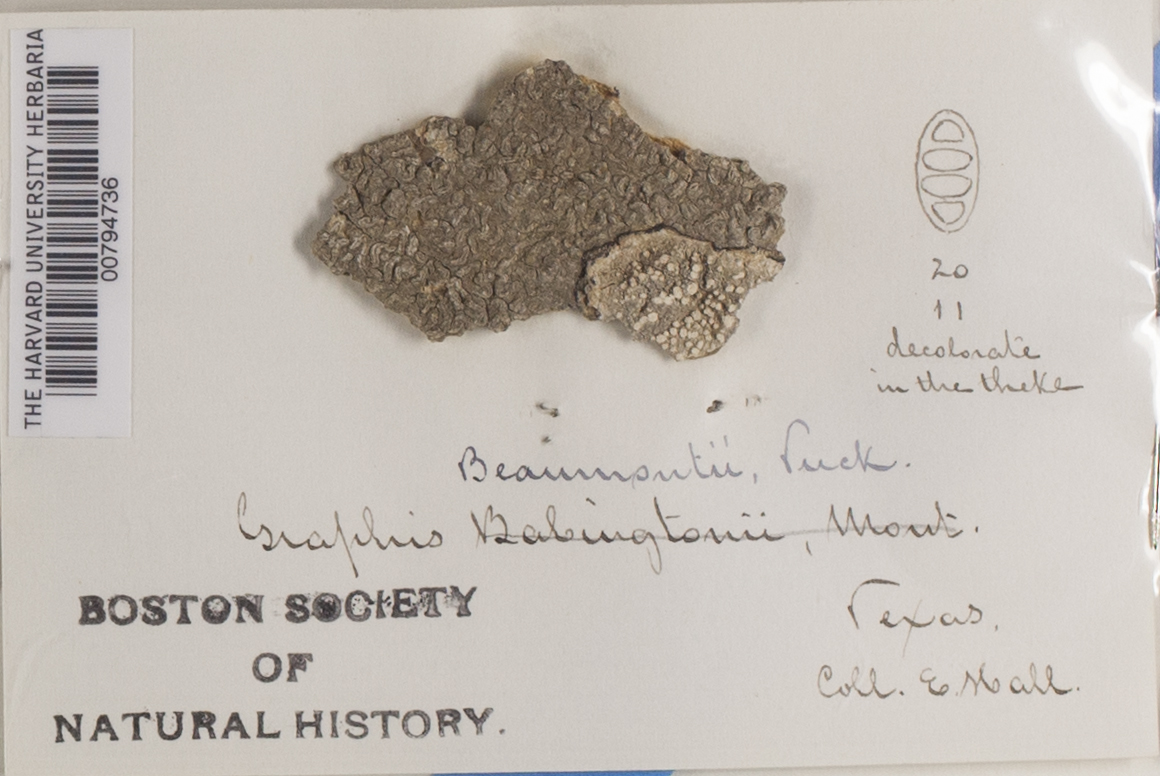 THE HARVARD UNIVERSITY HERBARIA
00794736
20
11
decolorate
in the theke
Beaumontii, Tuck.
Graphis Babingtonii, Mont.
BOSTON SOCIETY
OF
NATURAL HISTORY.
Texas.
Coll. E. Hall.